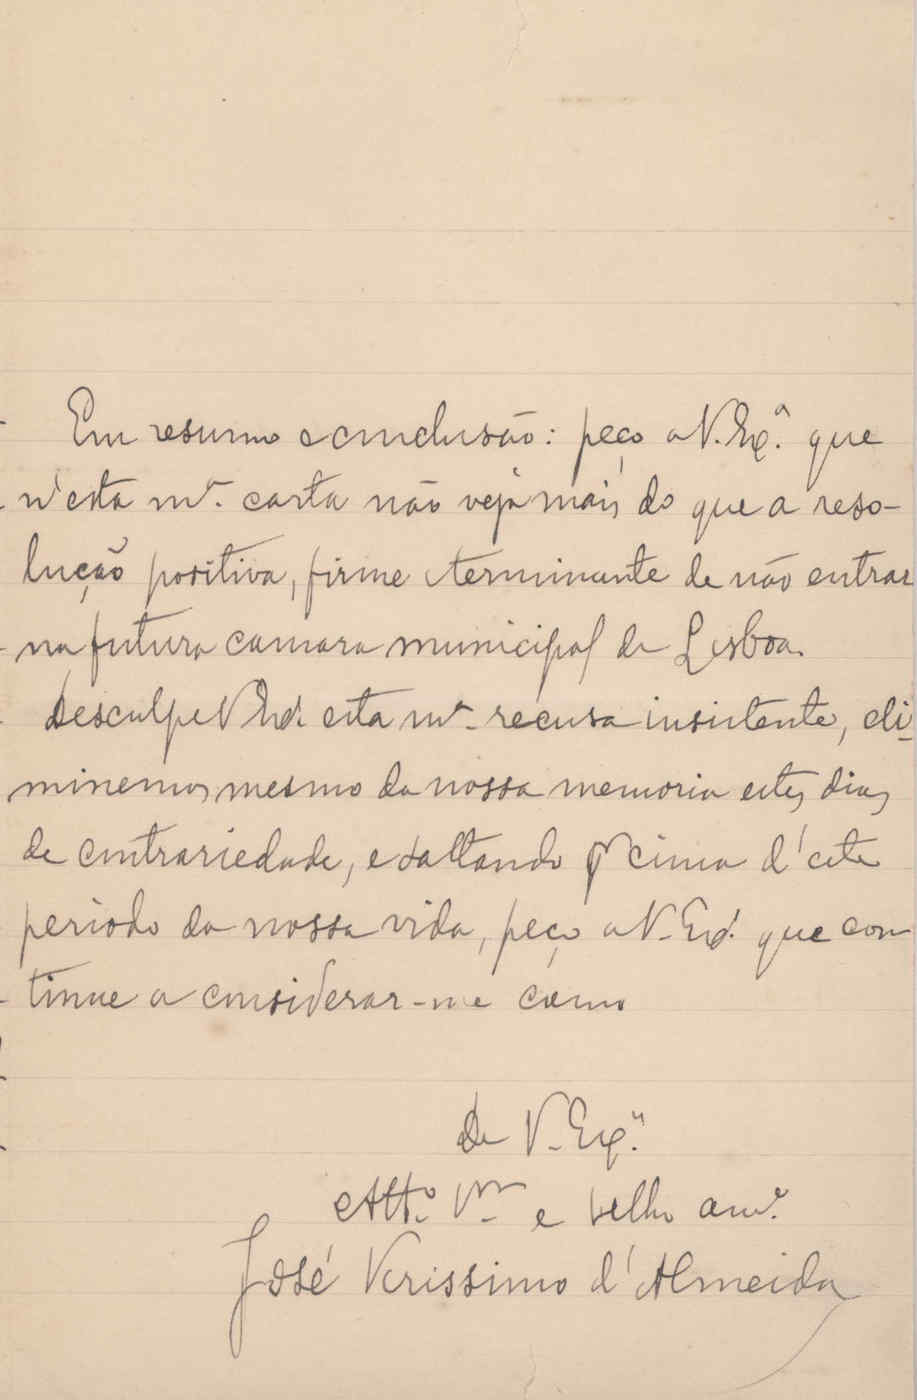 Em resumo e conclusão: peço a V. Exª. que
n'esta mª. carta não veja mais do que a reso-
lução positiva, firme e terminante de não entrar
na futura camara municipal de Lisboa.
Desculpe V Exª. esta mª. recusa insistente, eli-
minemos mesmo da nossa memoria estes dias
de contrariedade, e saltando pr cima d'este
periodo da nossa vida, peço a V. Exª. que con
tinue a considerar-me como
De V. Exª.
Attº. Vor. e velho amº.
José Verissimo d'Almeida